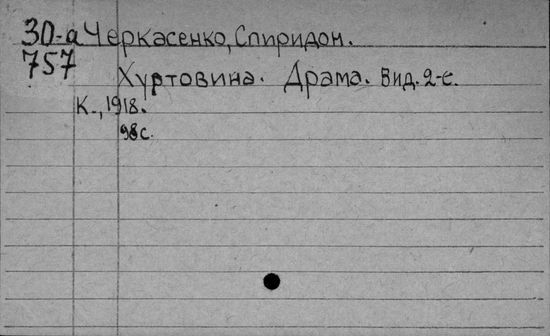 30-а Черкасенко, Спиридон.
757
Хуртовина. Драма. Вид. 2-е.
К., 1918.
98 с.